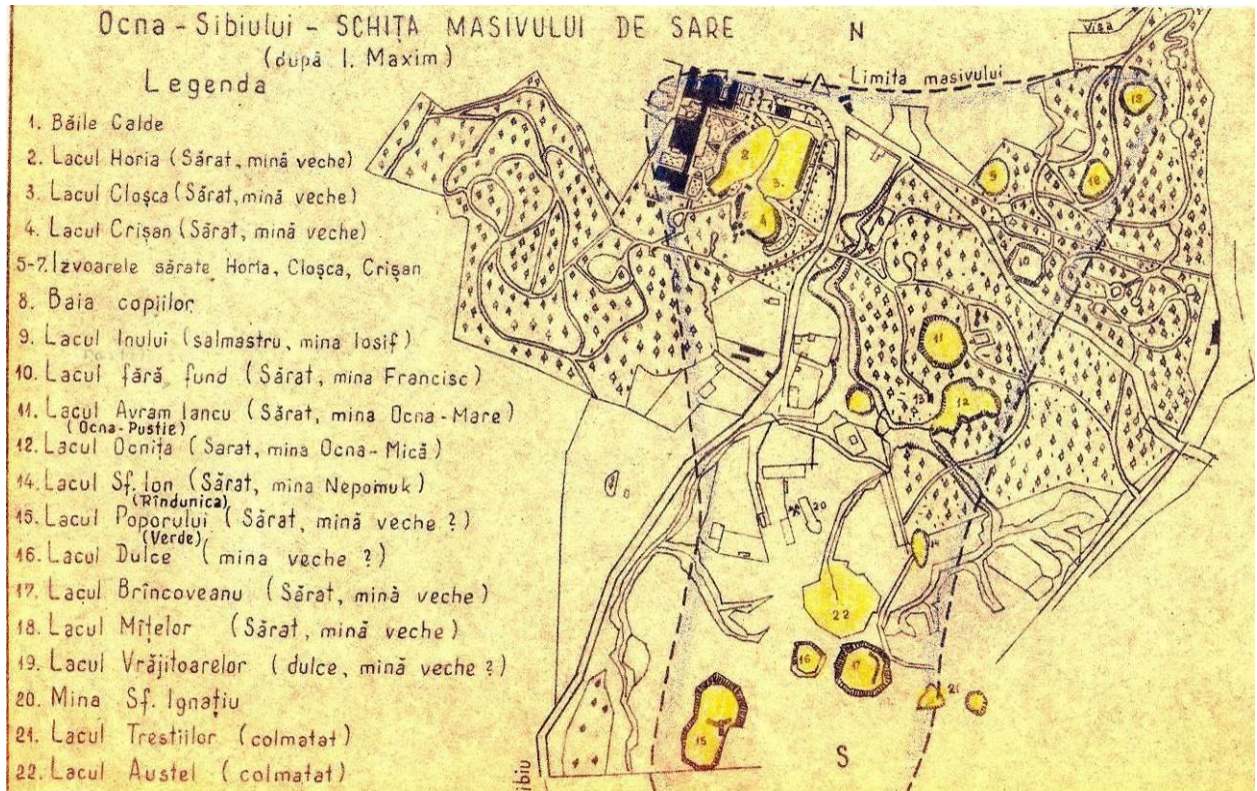 Ocna - Sibiului - SCHIȚA MASIVULUI DE SARE
(după I. Maxim)
Legenda
1. Băile Calde
2. Lacul Horia (Sărat, mină veche)
3. Lacul Cloșca (Sărat, mină veche)
4. Lacul Crișan (Sărat, mină veche)
5-7. Izvoarele sărate Horia, Cloșca, Crișan
8. Baia copiilor
9. Lacul Inului (salmastru, mina Iosif)
10. Lacul fără fund (Sărat, mina Francisc)
11. Lacul Avram Iancu (Sărat, mina Ocna-Mare)
(Ocna-Pustie)
12. Lacul Ocnița (Sarat, mina Ocna-Mică)
14. Lacul Sf. Ion (Sărat, mina Nepomuk)
(Rîndunica)
15. Lacul Poporului (Sărat, mină veche ?)
(Verde)
16. Lacul Dulce (mina veche ?)
17. Lacul Brîncoveanu (Sărat, mină veche)
18. Lacul Mîțelor (Sărat, mină veche)
19. Lacul Vrăjitoarelor (dulce, mină veche ?)
20. Mina Sf. Ignațiu
21. Lacul Trestiilor (colmatat)
22. Lacul Austel (colmatat)
N
Visa
Limita masivului
2
3
4
9
10
11
12
13
14
20
22
16
17
21
15
S
Sibiu